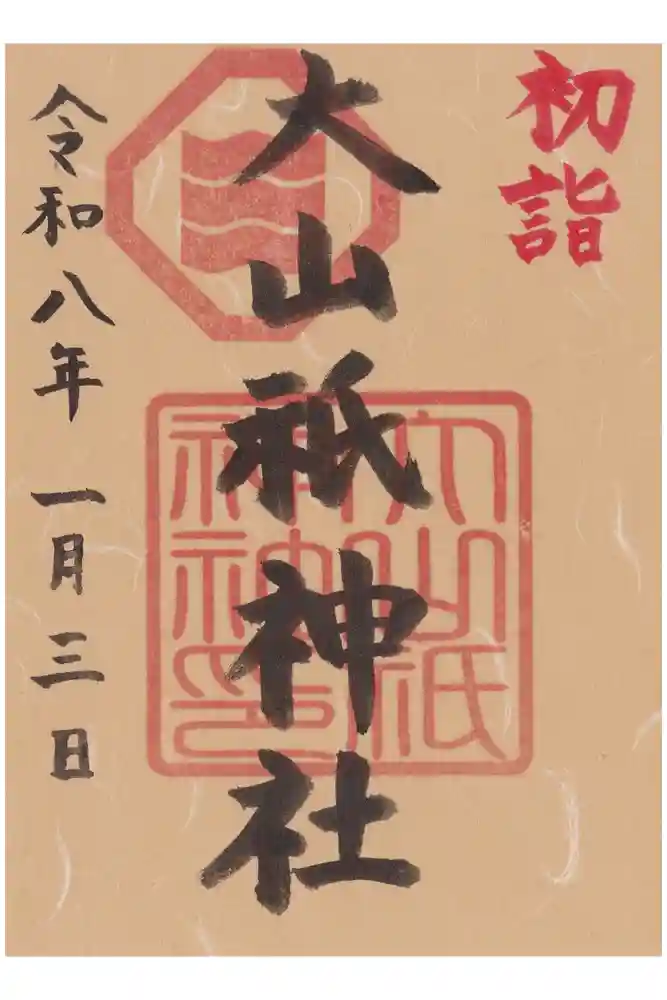 初詣
大山祇神社
大山祇神社神印
令和八年一月三日